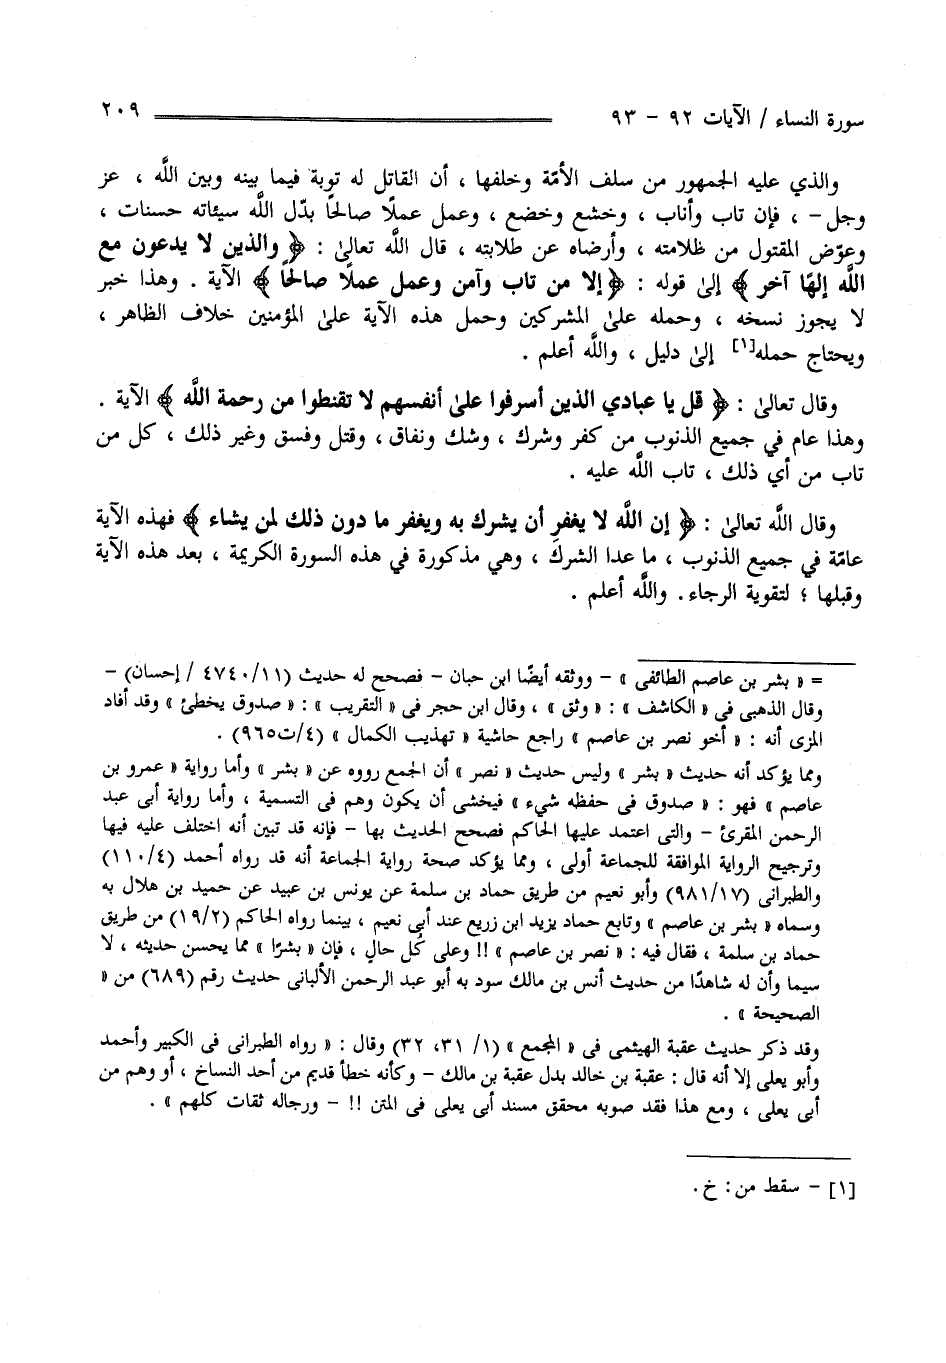 سورة النساء / الآيات ٩٢ - ٩٣
٢٠٩
والذي عليه الجمهور من سلف الأمّة وخلفها ، أن القاتل له توبة فيما بينه وبين اللَّه ، عز
وجل- ، فإن تاب وأناب ، وخشع وخضع ، وعمل عملًا صالحًا بدّل اللَّه سيئاته حسنات ،
وعوّض المقتول من ظلامته ، وأرضاه عن طلابته ، قال اللَّه تعالىٰ : ﴿ والذين لا يدعون مع
اللَّه إلهًا آخر ﴾ إلىٰ قوله : ﴿ إلا من تاب وآمن وعمل عملًا صالحًا ﴾ الآية . وهذا خبر
لا يجوز نسخه ، وحمله علىٰ المشركين وحمل هذه الآية علىٰ المؤمنين خلاف الظاهر ،
ويحتاج حمله[١] إلىٰ دليل ، واللَّه أعلم .
وقال تعالىٰ : ﴿ قل يا عبادي الذين أسرفوا علىٰ أنفسهم لا تقنطوا من رحمة اللَّه ﴾ الآية .
وهذا عام في جميع الذنوب من كفر وشرك ، وشك ونفاق ، وقتل وفسق وغير ذلك ، كل من
تاب من أي ذلك ، تاب اللَّه عليه .
وقال اللَّه تعالىٰ : ﴿ إن اللَّه لا يغفر أن يشرك به ويغفر ما دون ذلك لمن يشاء ﴾ فهذه الآية
عامّة في جميع الذنوب ، ما عدا الشرك ، وهي مذكورة في هذه السورة الكريمة ، بعد هذه الآية
وقبلها ؛ لتقوية الرجاء. واللَّه أعلم .
= « بشر بن عاصم الطائفى » - ووثقه أيضًا ابن حبان - فصحح له حديث (٤٧٤٠/١١ / إحسان) -
وقال الذهبى فى « الكاشف » : « وثق » ، وقال ابن حجر فى « التقريب » : « صدوق يخطئ » وقد أفاد
المزى أنه : « أخو نصر بن عاصم » راجع حاشية « تهذيب الكمال » (٤/ت٩٦٥) .
ومما يؤكد أنه حديث « بشر » وليس حديث « نصر » أن الجمع رووه عن « بشر » وأما رواية « عمرو بن
عاصم » فهو : « صدوق فى حفظه شيء » فيخشى أن يكون وهم فى التسمية ، وأما رواية أبى عبد
الرحمن المقرئ - والتى اعتمد عليها الحاكم فصحح الحديث بها - فإنه قد تبين أنه اختلف عليه فيها
وترجيح الرواية الموافقة للجماعة أولى ، ومما يؤكد صحة رواية الجماعة أنه قد رواه أحمد (١١٠/٤)
والطبرانى (٩٨١/١٧) وأبو نعيم من طريق حماد بن سلمة عن يونس بن عبيد عن حميد بن هلال به
وسماه « بشر بن عاصم » وتابع حماد يزيد ابن زريع عند أبى نعيم ، بينما رواه الحاكم (١٩/٢) من طريق
حماد بن سلمة ، فقال فيه : « نصر بن عاصم » !! وعلى كُل حالٍ ، فإن « بشرًا » مما يحسن حديثه ، لا
سيما وأن له شاهدًا من حديث أنس بن مالك سود به أبو عبد الرحمن الألبانى حديث رقم (٦٨٩) من «
الصحيحة » .
وقد ذكر حديث عقبة الهيثمى فى « المجمع » (١/ ٣١، ٣٢) وقال : « رواه الطبرانى فى الكبير وأحمد
وأبو يعلى إلا أنه قال : عقبة بن خالد بدل عقبة بن مالك - وكأنه خطأ قديم من أحد النساخ ، أو وهم من
أبى يعلى ، ومع هذا فقد صوبه محقق مسند أبى يعلى فى المتن !! - ورجاله ثقات كلهم » .
[١] - سقط من : خ .